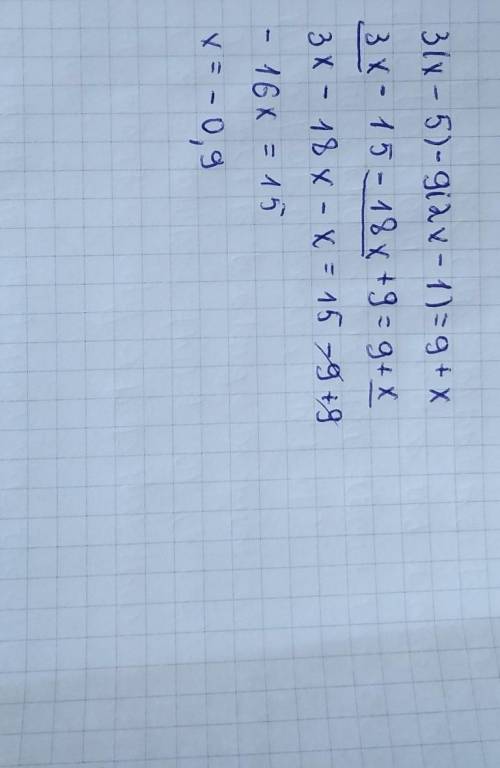 3(x - 5) - 9(2x - 1) = 9 + x
3x - 15 - 18x + 9 = 9 + x
3x - 18x - x = 15 - 9 + 9
- 16x = 15
x = - 0,9